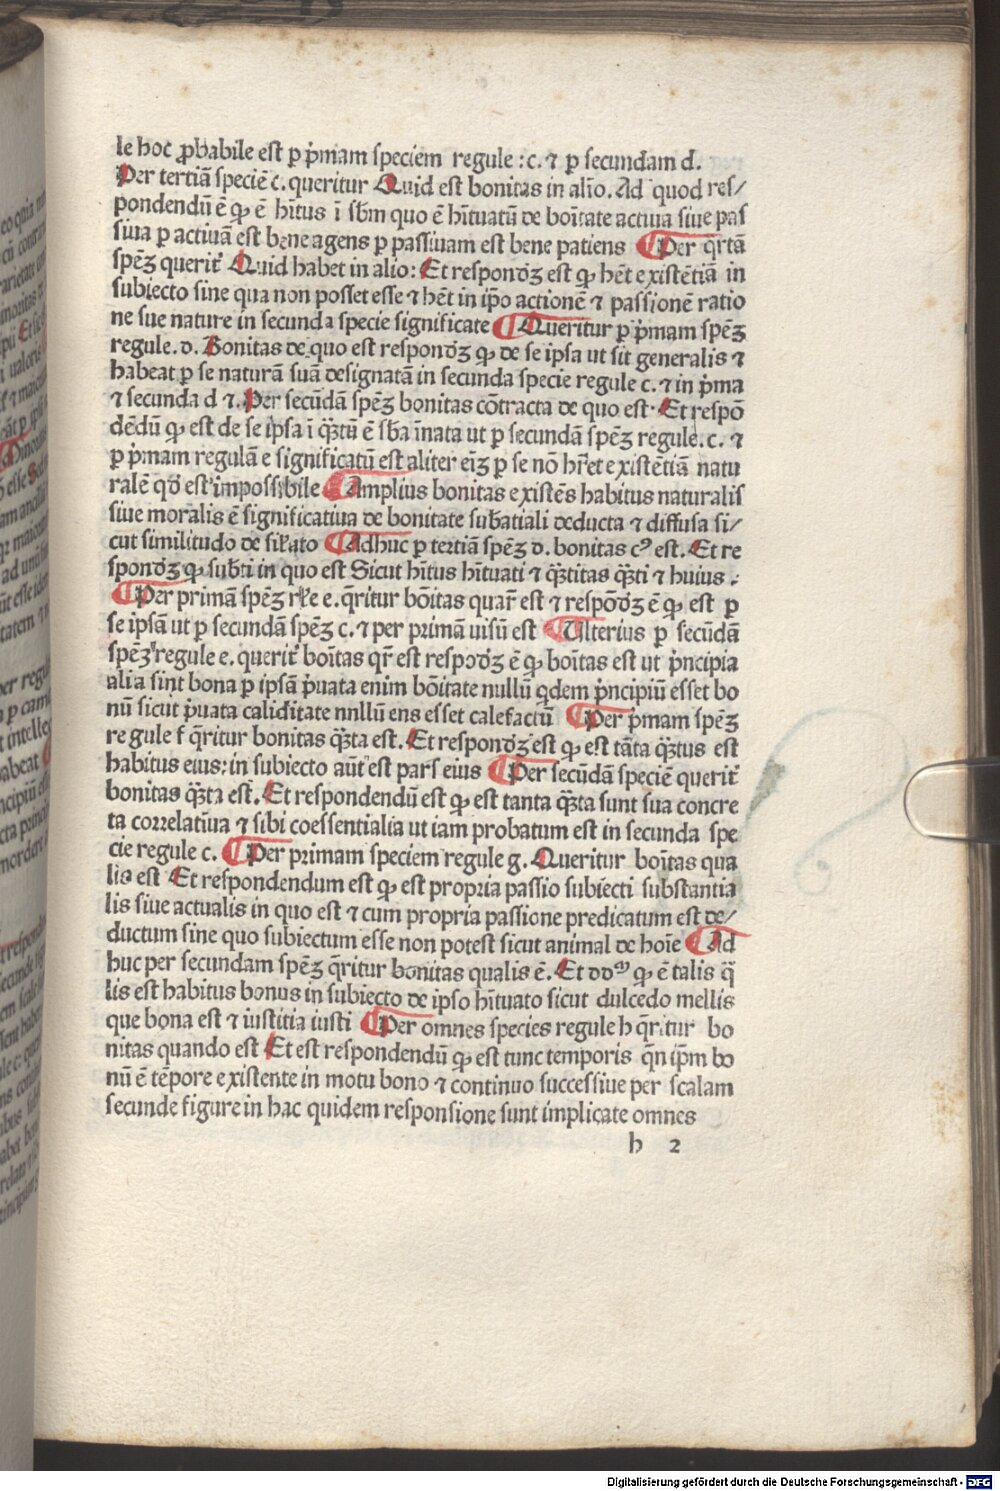 le hoc ꝓbabile est ꝑ p̄mam speciem regule : c. ⁊ ꝑ secundam d.
Per tertiā speciē c. queritur Quid est bonitas in alio. Ad quod res/
pondendū ē ꝙ ē hītus ī sbm̄ quo ē hītuatū de boītate actiua siue pas
siua ꝑ actiuā est bene agens ꝑ passiuam est bene patiens ¶ Per qrtā
spēꝫ querit᷑ Quid habet in alio: Et respondꝫ est ꝙ hēt existētiā in
subiecto sine qua non posset esse ⁊ hēt in ip̄o actionē ⁊ passionē ratio
ne sue nature in secunda specie significate ¶ Queritur ꝑ p̄mam spēꝫ
regule. d. Bonitas de quo est respondꝫ ꝙ de se ipsa ut sit generalis ⁊
habeat ꝑ se naturā suā designatā in secunda specie regule c. ⁊ in p̄ma
⁊ secunda d ⁊. Per secūdā spēꝫ bonitas cōtracta de quo est. Et respō
dēdū ꝙ est de se ipsa ī q̄ꝫtū ē sb̄a īnata ut ꝑ secundā spēꝫ regule. c. ⁊
ꝑ p̄mam regulā e significatū est aliter eīꝫ ꝑ se nō hr̄et existētiā natu
ralē qd̄ est impossibile ¶ Amplius bonitas existēs habitus naturalis
siue moralis ē significatiua de bonitate sub̄atiali deducta ⁊ diffusa si/
cut similitudo de sil̄ato ¶ Adhuc ꝑ tertiā spēꝫ d. bonitas cꝰ est. Et re
spondꝫ ꝙ sub̄ti in quo est Sicut hītus hītuati ⁊ q̄ꝫtitas q̄ꝫti ⁊ huius.
¶ Per primā spēꝫ rl̄e e. q̄ritur bōitas quar̄ est ⁊ respōdꝫ ē ꝙ est ꝑ
se ipsā ut ꝑ secundā spēꝫ c. ⁊ per primā uisū est ¶ Ulterius ꝑ secūdā
spēꝫ regule e. querit᷑ boītas qr̄ est respōdꝫ ē ꝙ boītas est ut p̄ncipia
alia sint bona ꝑ ipsā p̄uata enim bōitate nullū qdem p̄ncipiū esset bo
nū sicut p̄uata caliditate nnllū ens esset calefactū ¶ Per p̄mam spēꝫ
regule f q̄ritur bonitas q̄ꝫta est. Et respondꝫ est ꝙ est tāta q̄ꝫtus est
habitus eius: in subiecto aūt est pars eius ¶ Per secūdā speciē querit᷑
bonitas q̄ꝫta est. Et respondendū est ꝙ est tanta q̄ꝫta sunt sua concre
ta correlatiua ⁊ sibi coessentialia ut iam probatum est in secunda spe
cie regule c. ¶ Per primam speciem regule g. Queritur boītas qua
lis est Et respondendum est ꝙ est propria passio subiecti substantia
lis siue actualis in quo est ⁊ cum propria passione predicatum est de/
ductum sine quo subiectum esse non potest sicut animal de hoīe ¶ Ad
huc per secundam spēꝫ q̄ritur bonitas qualis ē. Et ddᵐ ꝙ ē talis q̄
lis est habitus bonus in subiecto de ipso hītuato sicut dulcedo mellis
que bona est ⁊ iustitia iusti ¶ Per omnes species regule h q̄ritur bo
nitas quando est Et est respondendū ꝙ est tunc temporis q̄n ip̄m bo
nū ē tēpore existente in motu bono ⁊ continuo successiue per scalam
secunde figure in hac quidem responsione sunt implicate omnes
h 2
Digitalisierung gefördert durch die Deutsche Forschungsgemeinschaft - DFG